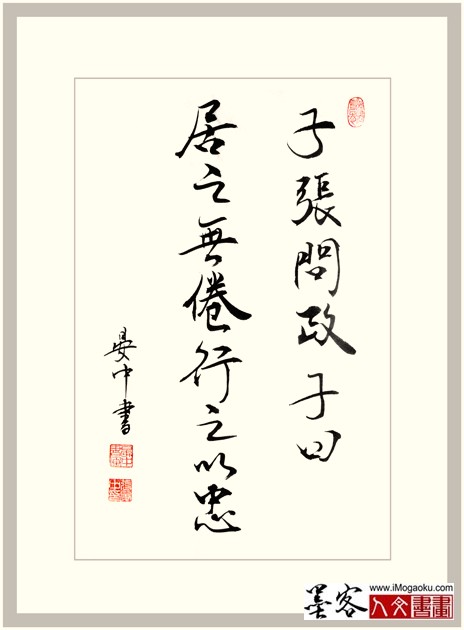 子張問政子曰
居之無倦行之以忠
晏中書
墨客
www.iMogaoku.com
人文書畫